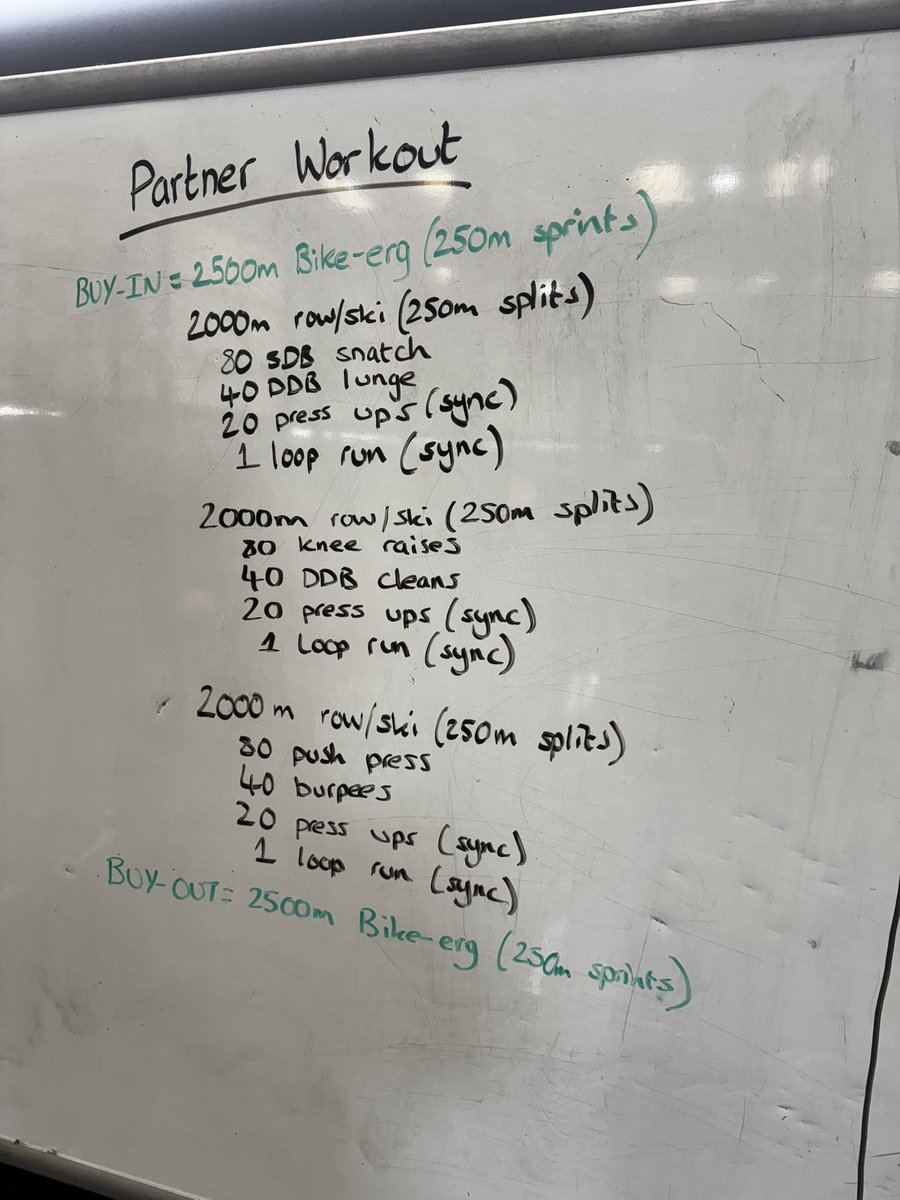 Partner Workout
BUY-IN = 2500m Bike-erg (250m sprints)
2000m row/ski (250m splits)
80 SDB snatch
40 DDB lunge
20 press ups (sync)
1 loop run (sync)
2000m row/ski (250m splits)
80 knee raises
40 DDB cleans
20 press ups (sync)
1 Loop run (sync)
2000m row/ski (250m splits)
80 push press
40 burpees
20 press ups (sync)
1 loop run (sync)
BUY-OUT = 2500m Bike-erg (250m sprints)